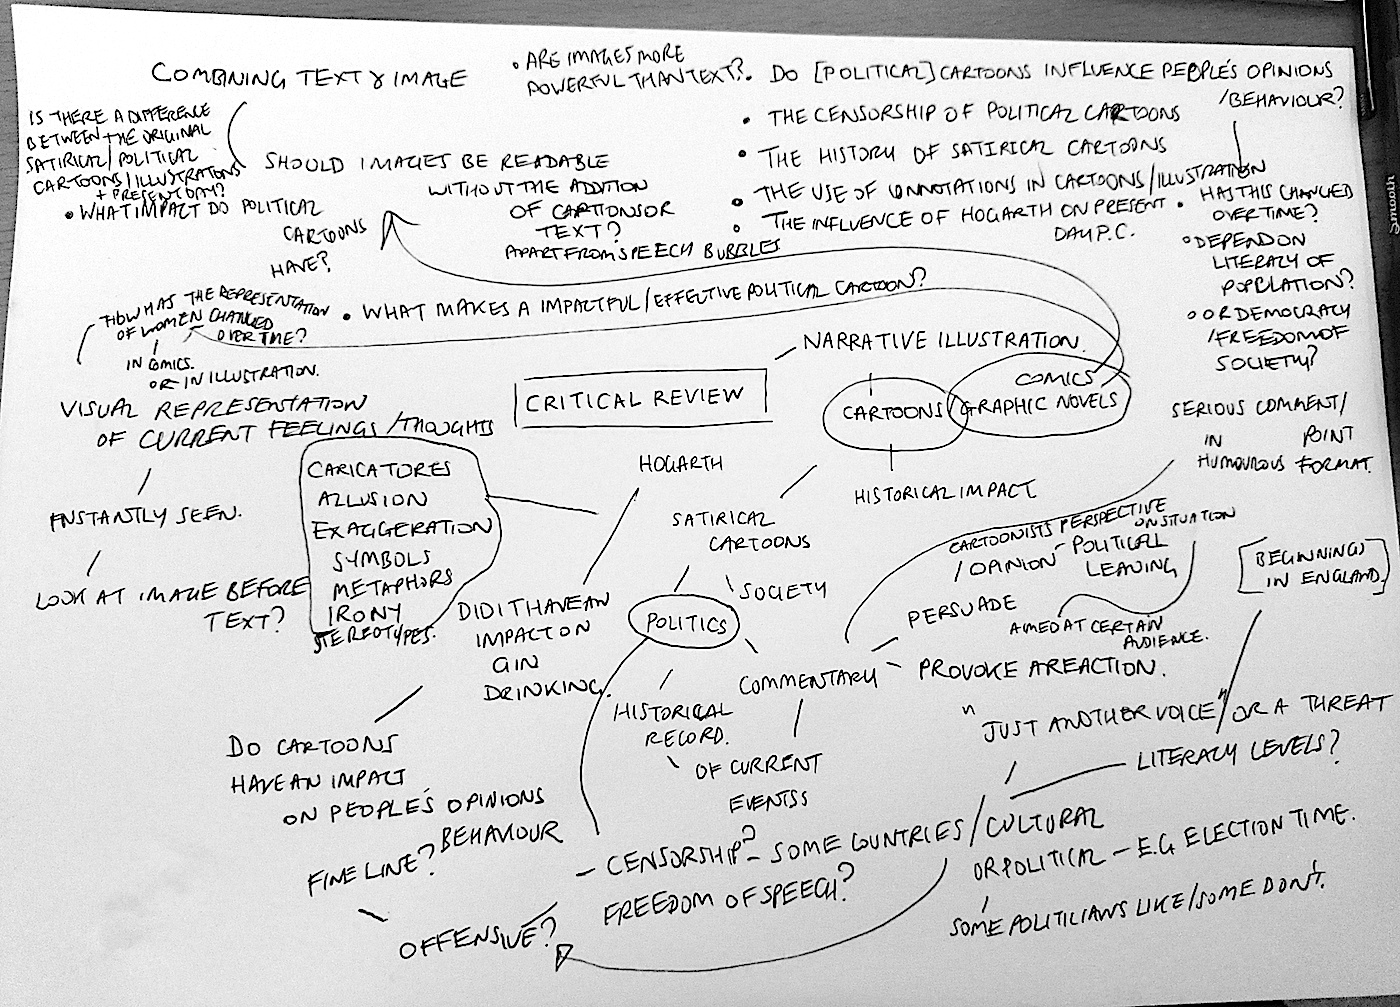 COMBINING TEXT & IMAGE
• ARE IMAGES MORE
POWERFUL THAN TEXT?
• DO [POLITICAL] CARTOONS INFLUENCE PEOPLE'S OPINIONS
/BEHAVIOUR?
IS THERE A DIFFERENCE
BETWEEN THE ORIGINAL
SATIRICAL/POLITICAL
CARTOONS/ILLUSTRATIONS
+ PRESENT DAY?
• THE CENSORSHIP OF POLITICAL CARTOONS
• THE HISTORY OF SATIRICAL CARTOONS
• THE USE OF CONNOTATIONS IN CARTOONS/ILLUSTRATION
• THE INFLUENCE OF HOGARTH ON PRESENT
DAY P.C.
SHOULD IMAGES BE READABLE
WITHOUT THE ADDITION
OF CAPTIONS OR
TEXT?
APART FROM SPEECH BUBBLES
• WHAT IMPACT DO POLITICAL
CARTOONS
HAVE?
• HAS THIS CHANGED
OVER TIME?
• DEPEND ON
LITERACY OF
POPULATION?
• OR DEMOCRACY
/FREEDOM OF
SOCIETY?
HOW HAS THE REPRESENTATION
OF WOMEN CHANGED
OVER TIME?
IN COMICS.
OR IN ILLUSTRATION.
• WHAT MAKES A IMPACTFUL/EFFECTIVE POLITICAL CARTOON?
NARRATIVE ILLUSTRATION.
CRITICAL REVIEW
CARTOONS
COMICS
GRAPHIC NOVELS
HISTORICAL IMPACT
SERIOUS COMMENT/
IN POINT
HUMOUROUS FORMAT.
VISUAL REPRESENTATION
OF CURRENT FEELINGS/THOUGHTS
INSTANTLY SEEN.
LOOK AT IMAGE BEFORE
TEXT?
CARICATURES
ALLUSION
EXAGGERATION
SYMBOLS
METAPHORS
IRONY
STEREOTYPES.
HOGARTH
SATIRICAL
CARTOONS
SOCIETY
POLITICS
CARTOONISTS PERSPECTIVE
ON SITUATION
/OPINION POLITICAL
LEANING
[BEGINNINGS
IN ENGLAND.]
PERSUADE
AIMED AT CERTAIN
AUDIENCE.
COMMENTARY
PROVOKE A REACTION.
DID IT HAVE AN
IMPACT ON
GIN
DRINKING.
HISTORICAL
RECORD.
OF CURRENT
EVENTSS
"JUST ANOTHER VOICE"/OR A THREAT
LITERACY LEVELS?
DO CARTOONS
HAVE AN IMPACT
ON PEOPLE'S OPINIONS
BEHAVIOUR
FINE LINE?
OFFENSIVE?
– CENSORSHIP? – SOME COUNTRIES/CULTURAL
OR POLITICAL – E.G ELECTION TIME.
FREEDOM OF SPEECH?
SOME POLITICIANS LIKE/SOME DON'T.
Smooth